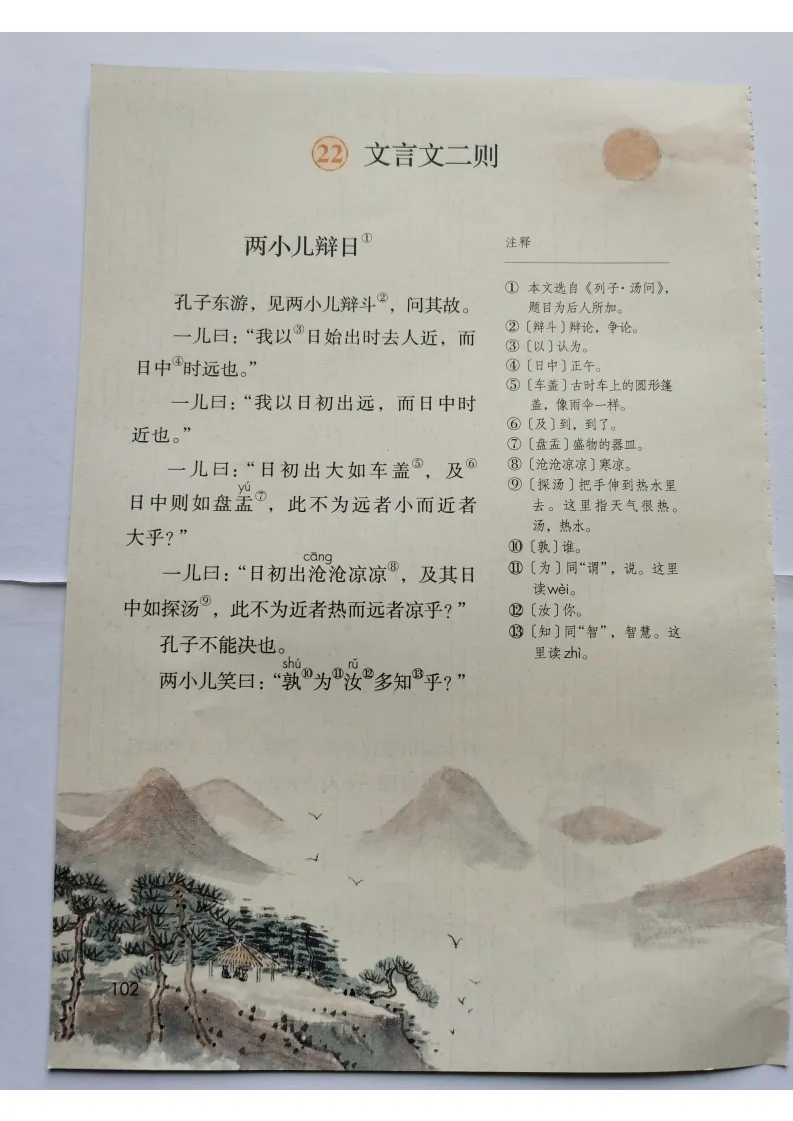 22 文言文二则
两小儿辩日①
孔子东游，见两小儿辩斗②，问其故。
一儿曰：“我以③日始出时去人近，而
日中④时远也。”
一儿曰：“我以日初出远，而日中时
近也。”
一儿曰：“日初出大如车盖⑤，及⑥
yú
日中则如盘盂⑦，此不为远者小而近者
大乎？”
cāng
一儿曰：“日初出沧沧凉凉⑧，及其日
中如探汤⑨，此不为近者热而远者凉乎？”
孔子不能决也。
shú rǔ
两小儿笑曰：“孰⑩为⑪汝⑫多知⑬乎？”
注释
① 本文选自《列子·汤问》，
题目为后人所加。
②〔辩斗〕辩论，争论。
③〔以〕认为。
④〔日中〕正午。
⑤〔车盖〕古时车上的圆形篷
盖，像雨伞一样。
⑥〔及〕到，到了。
⑦〔盘盂〕盛物的器皿。
⑧〔沧沧凉凉〕寒凉。
⑨〔探汤〕把手伸到热水里
去。这里指天气很热。
汤，热水。
⑩〔孰〕谁。
⑪〔为〕同“谓”，说。这里
读wèi。
⑫〔汝〕你。
⑬〔知〕同“智”，智慧。这
里读zhì。
102